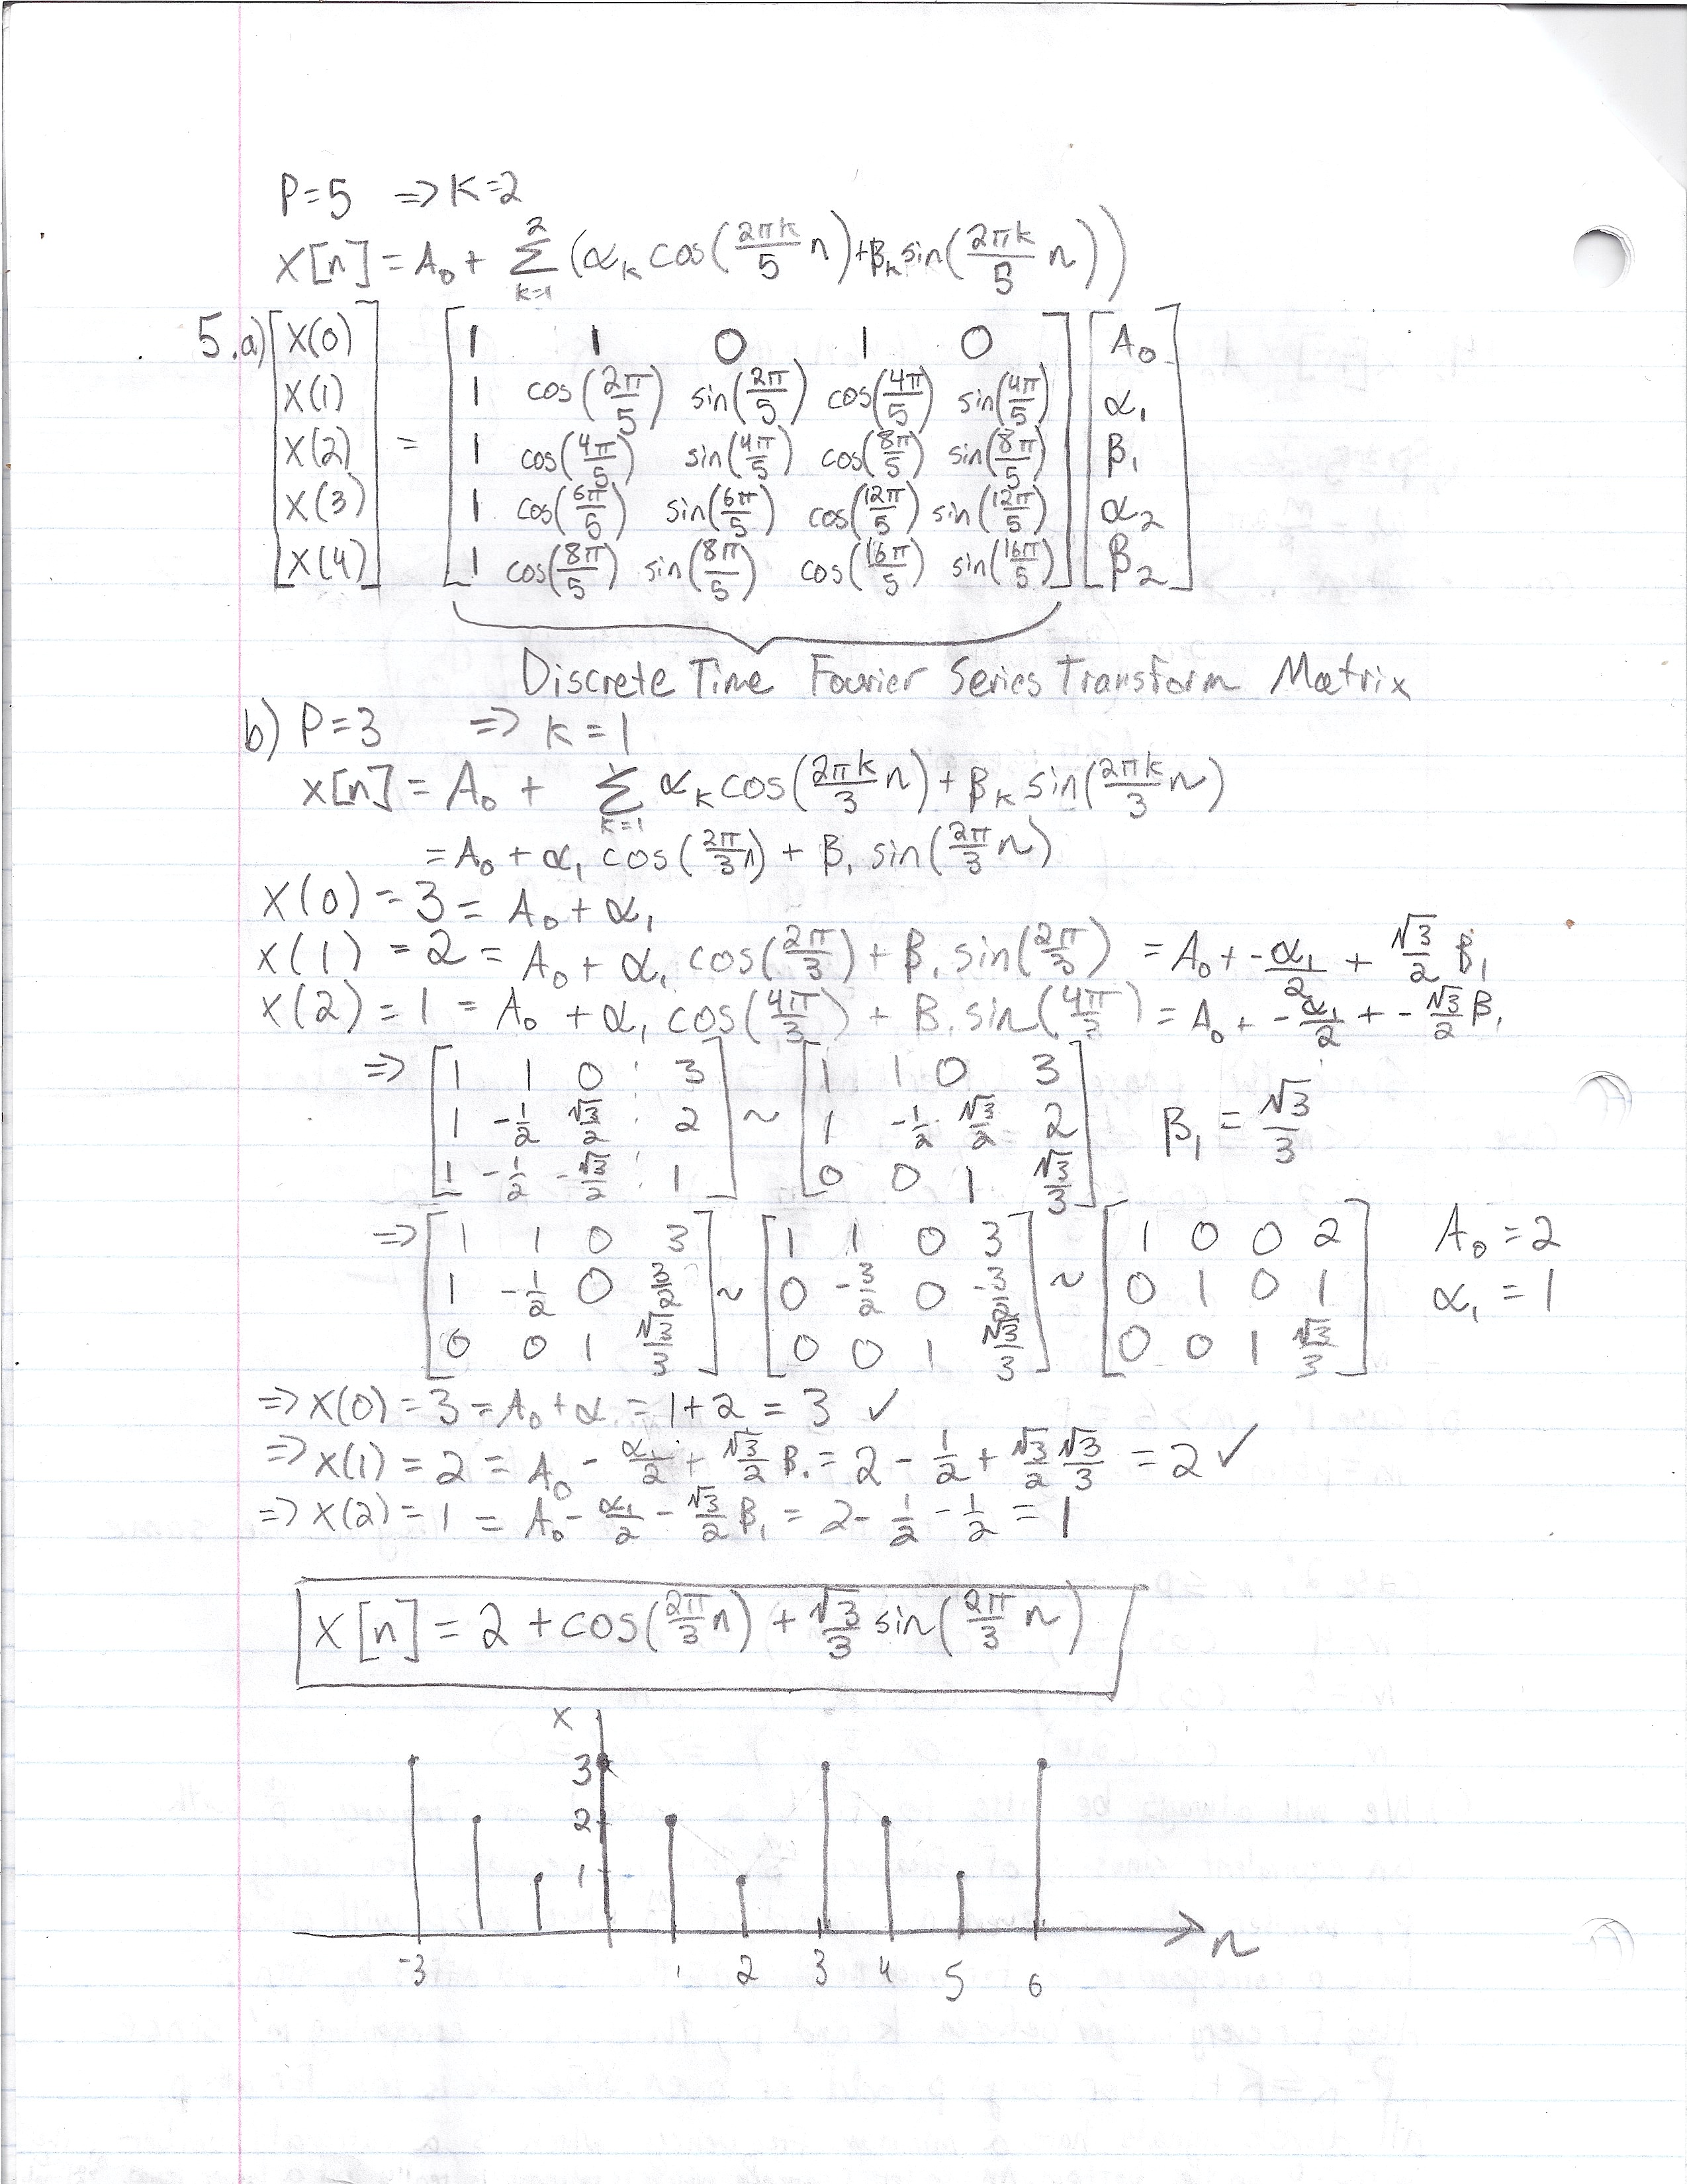 P=5 ⇒ K=2
x[n] = A₀ + Σ_{k=1}^{2} (α_k cos(2πk/5 n) + β_k sin(2πk/5 n))
5.a) [x(0)] [1 1 0 1 0] [A₀]
[x(1)] [1 cos(2π/5) sin(2π/5) cos(4π/5) sin(4π/5)] [α₁]
[x(2)] = [1 cos(4π/5) sin(4π/5) cos(8π/5) sin(8π/5)] [β₁]
[x(3)] [1 cos(6π/5) sin(6π/5) cos(12π/5) sin(12π/5)] [α₂]
[x(4)] [1 cos(8π/5) sin(8π/5) cos(16π/5) sin(16π/5)] [β₂]
Discrete Time Fourier Series Transform Matrix
b) P=3 ⇒ K=1
x[n] = A₀ + Σ_{k=1}^{1} α_k cos(2πk/3 n) + β_k sin(2πk/3 n)
= A₀ + α₁ cos(2π/3 n) + β₁ sin(2π/3 n)
x(0) = 3 = A₀ + α₁
x(1) = 2 = A₀ + α₁ cos(2π/3) + β₁ sin(2π/3) = A₀ + -α₁/2 + √3/2 β₁
x(2) = 1 = A₀ + α₁ cos(4π/3) + β₁ sin(4π/3) = A₀ + -α₁/2 + -√3/2 β₁
⇒ [1 1 0 : 3] [1 1 0 3]
[1 -1/2 √3/2 : 2] ~ [1 -1/2 √3/2 2] β₁ = √3/3
[1 -1/2 -√3/2 : 1] [0 0 1 √3/3]
⇒ [1 1 0 3] [1 1 0 3] [1 0 0 2] A₀ = 2
[1 -1/2 0 3/2] ~ [0 -3/2 0 -3/2] ~ [0 1 0 1] α₁ = 1
[0 0 1 √3/3] [0 0 1 √3/3] [0 0 1 √3/3]
⇒ x(0) = 3 = A₀ + α₁ = 1+2 = 3 ✓
⇒ x(1) = 2 = A₀ - α₁/2 + √3/2 β₁ = 2 - 1/2 + √3/2 √3/3 = 2 ✓
⇒ x(2) = 1 = A₀ - α₁/2 - √3/2 β₁ = 2 - 1/2 - 1/2 = 1
x[n] = 2 + cos(2π/3 n) + √3/3 sin(2π/3 n)
x
3
2
1
-3 1 2 3 4 5 6 n